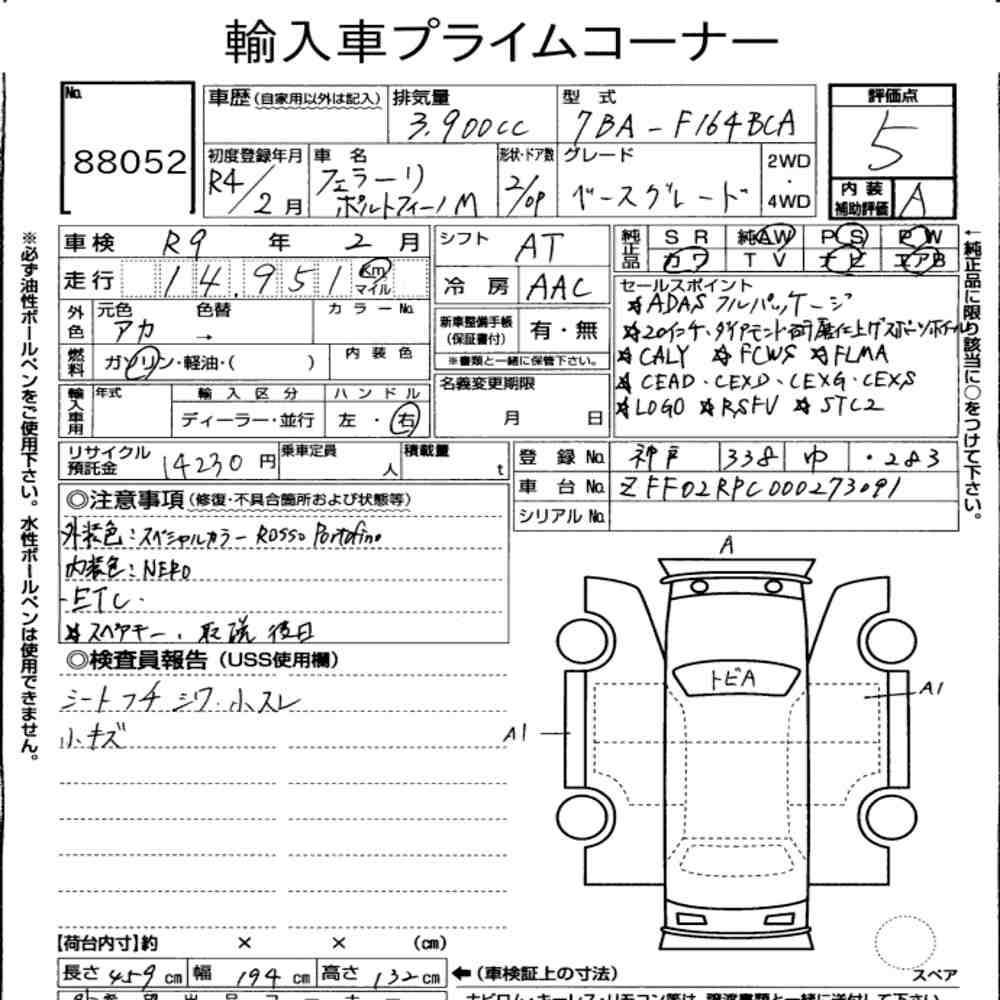 輸入車プライムコーナー
No.
88052
車歴(自家用以外は記入)
排気量
3.900cc
型 式
7BA-F164BCA
評価点
5
初度登録年月
R4/2月
車 名
フェラーリ
ポルトフィーノM
形状・ドア数
2/OP
グレード
ベースグレード
2WD
・
4WD
内 装
補助評価
A
車 検 R9 年 2 月
走 行 14.951 Km マイル
外色
元色
アカ
色替
→
カラー No.
燃料
ガソリン・軽油・( )
内 装 色
輸入車用
年式
輸 入 区 分
ディーラー・並行
ハ ン ド ル
左 ・ 右
シフト AT
冷 房 AAC
新車整備手帳
(保証書付)
有・無
※書類と一緒に保管下さい。
名義変更期限
月 日
純正品
SR 純AW PS PW
カワ TV ナビ エアB
セールスポイント
☆ADAS フルパッケージ
☆20インチ・ダイヤモンド研磨仕上げスポーツホイール
☆CALY ☆FCWS ☆FLMA
☆CEAD・CEXD・CEXG・CEXS
☆LOGO ☆RSFV ☆STC2
リサイクル
預託金
14230 円
乗車定員
人
積載量
t
登 録 No. 神戸 338 ゆ ・283
車 台 No. ZFF02RPC000273091
シリアル No.
◎注意事項(修復・不具合箇所および状態等)
外装色:スペシャルカラー Rosso Portofino
内装色:NERO
・ETC・
☆スペアキー、取説 後日
◎検査員報告(USS使用欄)
シートフチ シワ・小スレ
小キズ
A
トビA
A1
A1
【荷台内寸】約 × × (cm)
長さ 459 cm 幅 194 cm 高さ 132 cm
←(車検証上の寸法)
スペア
※必ず油性ボールペンをご使用下さい。水性ボールペンは使用できません。
←純正品に限り該当に○をつけて下さい。